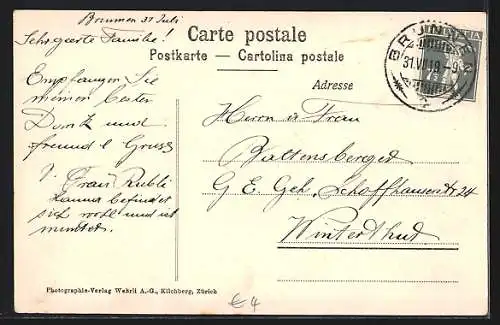 Brunnen 31 Juli
Sehr geerte Familie!
Empfangen Sie
meinen besten
Dank und
freundl Gruss
v. Frau Rubli
Hanna befindet
sich wohl und ist
munter.
Photographie-Verlag Wehrli A.-G., Kilchberg, Zürich
Carte postale
Postkarte — Cartolina postale
Adresse
BRUNNEN
31.VII.19 - 9
HELVETIA
7½
Herrn u Frau
Baltensberger
G E Geh, Schaffhauserstr 24
Winterthur
€ 4